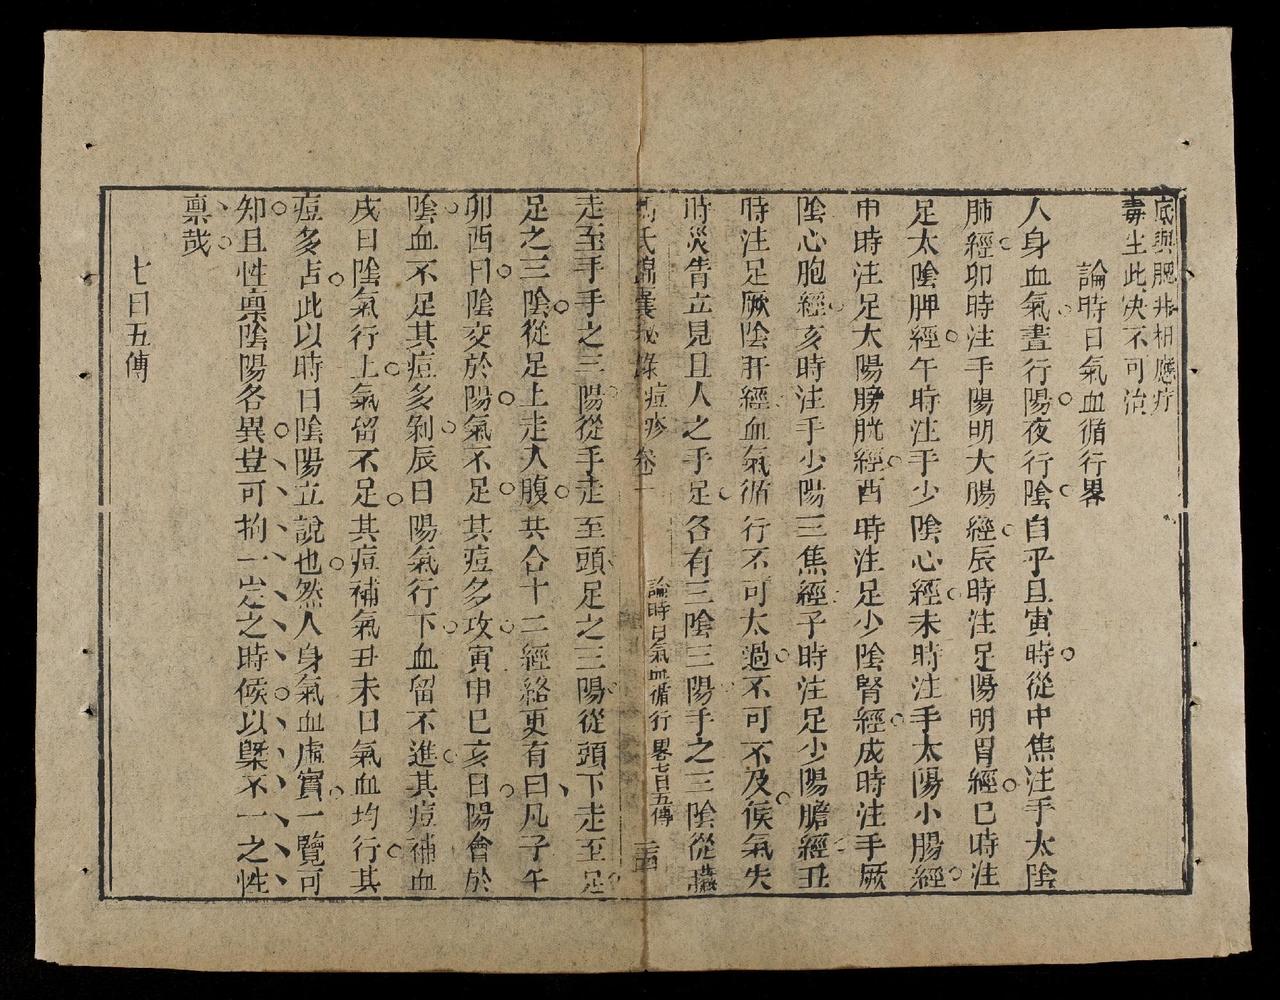 底與腮non相應疔
毒生此決不可治
論時日氣血循行畧
人身血氣晝行陽夜行陰自乎旦寅時從中焦注手太陰
肺經卯時注手陽明大腸經辰時注足陽明胃經巳時注
足太陰脾經午時注手少陰心經未時注手太陽小腸經
申時注足太陽膀胱經酉時注足少陰腎經戌時注手厥
陰心胞經亥時注手少陽三焦經子時注足少陽膽經丑
時注足厥陰肝經血氣循行不可太過不可不及候氣失
時災眚立見且人之手足各有三陰三陽手之三陰從臟
馮氏錦囊秘錄痘疹卷十 論時日氣血循行畧七日五傳 三十四
走至手手之三陽從手走至頭足之三陽從頭下走至足
足之三陰從足上走入腹共合十二經絡更有曰凡子午
卯酉日陰交於陽氣不足其痘多攻寅申巳亥日陽會於
陰血不足其痘多剝辰日陽氣行下血留不進其痘補血
戌日陰氣行上氣留不足其痘補氣丑未日氣血均行其
痘多占此以時日陰陽立說也然人身氣血虛實一覽可
知且性稟陰陽各異豈可拘一定之時候以槩不一之性
稟哉
七日五傳